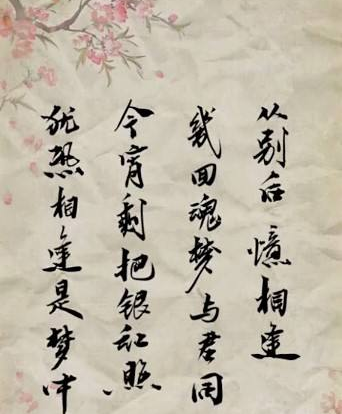 从别后 憶相逢
幾回魂梦与君同
今宵剩把银釭照
犹恐相逢是梦中